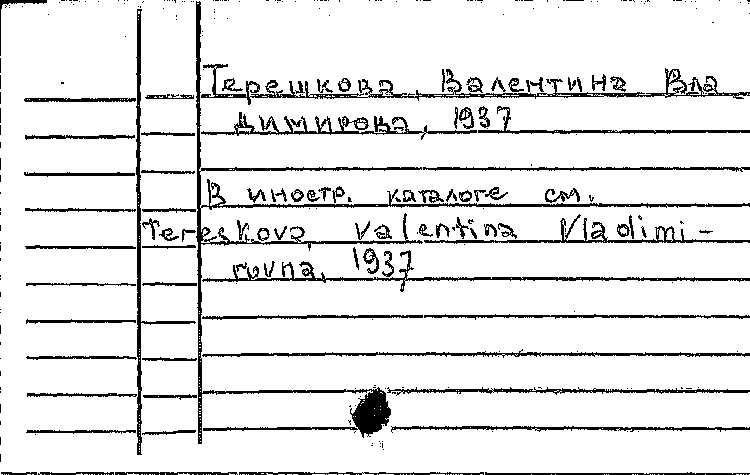 Терешкова, Валентина Вла
димирова, 1937
В иностр. каталоге см.
Tereskova, Valentina Vladimi-
rovna, 1937